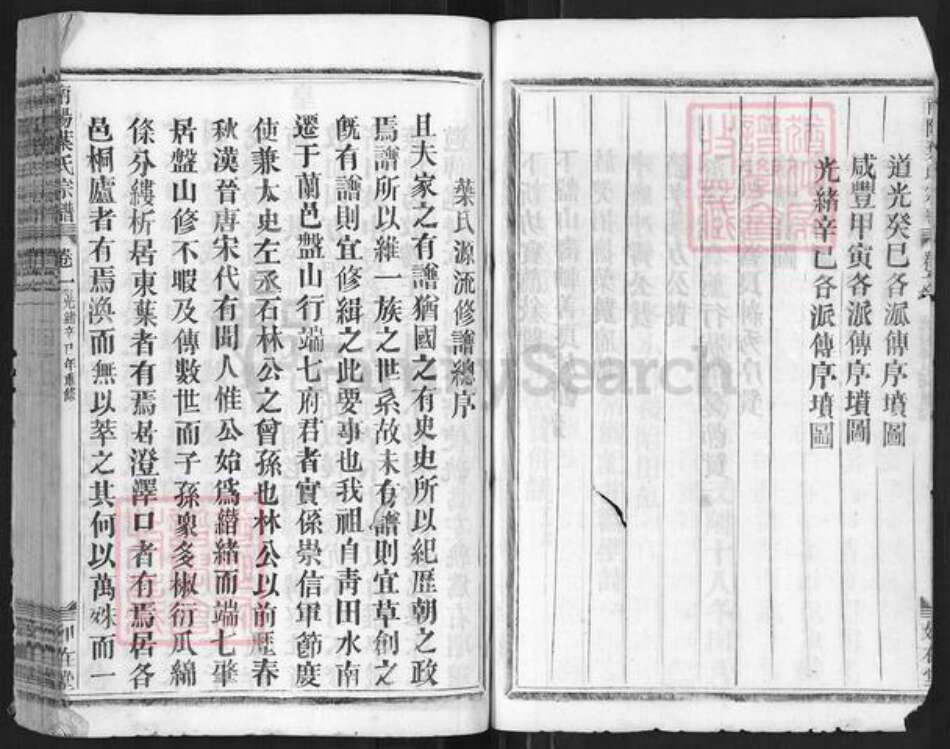 道光癸巳各派傳序墳圖
咸豐甲寅各派傳序墳圖
光緒辛巳各派傳序墳圖
葉氏源流修譜總序
且夫家之有譜猶國之有史史所以紀歷朝之政
焉譜所以維一族之世系故未有譜則宜草創之
旣有譜則宜修緝之此要事也我祖自靑田水南
遷于蘭邑盤山行端七府君者實係崇信軍節度
使兼太史左丞石林公之曾孫也林公以前歷春
秋漢晉唐宋代有聞人惟公始爲纘緒而端七肇
居盤山修不暇及傳數世而子孫衆多椒衍瓜綿
條分縷析居東葉者有焉居澄澤口者有焉居各
邑桐廬者有焉渙而無以萃之其何以萬殊而一
南陽葉氏宗譜 卷一 光緒辛巳年重修
如在堂
MySearch